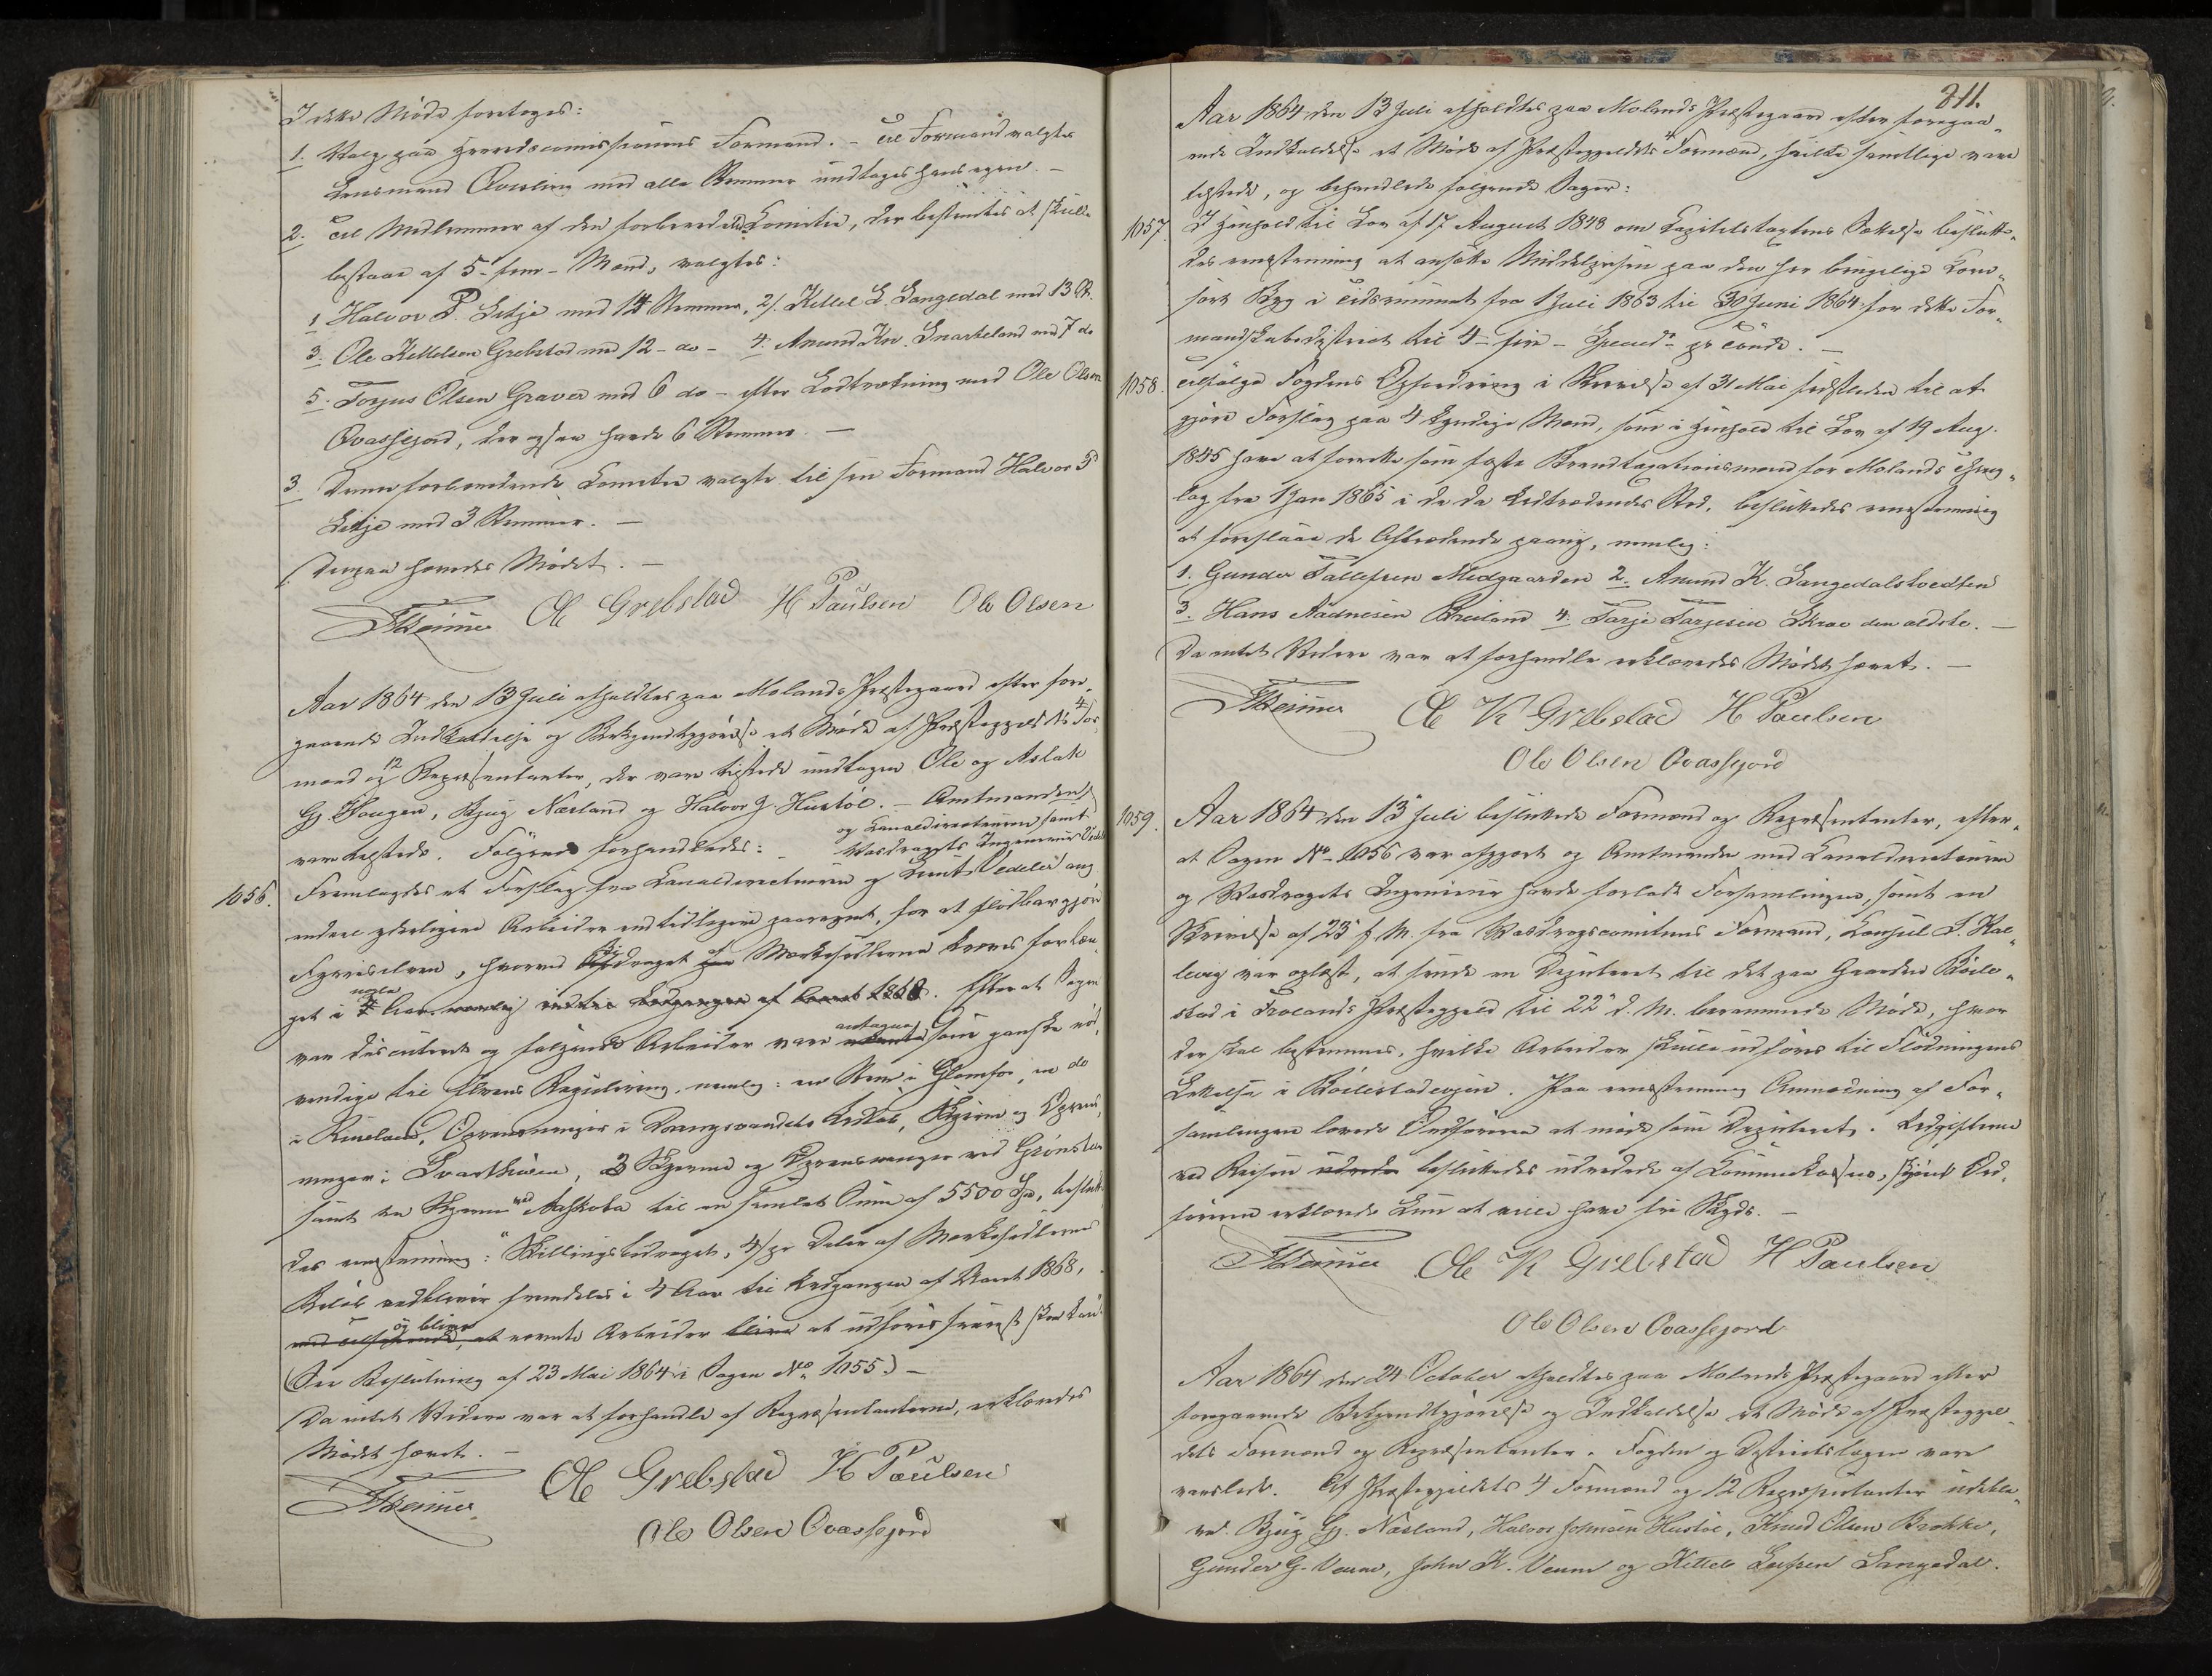 I dette Møde foretoges:
1. Valg paa Herredscomissionens Formand. – Til Formand valgtes
Lensmand Qvisling med alle Stemmer undtages hans egen. –
2. Til Medlemmer af den forberedende Comitee, der bestemtes at skulle
bestaae af 5 – fem – Mænd, valgtes:
1 Halvor P. Litje med 14 Stemmer, 2/. Kittel L. Langedal med 13 St.
3. Ole Kittelsen Grebstad med 12 – do – 4. Anund Kn. Snarteland med 7 do
5. Torjus Olsen Graver med 6 do – efter Lodtrækning med Ole Olsen
Qvassejord, der ogsaa havde 6 Stemmer. –
3. Denne forberedende Comitee valgte til sin Formand Halvor P
Litje med 3 Stemmer. –
Derpaa hævedes Mødet. –
Ole Grebstad H Paulsen Ole Olsen
Aar 1864 den 13 Juli afholdtes paa Molands Præstegaard efter fore-
gaaende Indkaldelse og Bekjendtgjørelse et Møde af Præstegjeldets 4 For-
mænd og 12 Repræsentanter, der vare tilstede undtagen Ole og Aslak
Gj. Haugen, Bjug Næsland og Halvor J. Hustøl. – Amtmanden
og Canaldirecteuren samt
Vasdragets Ingenieur Vedeld
vare tilstede. Følgende forhandledes:
1056. Fremlagdes et Forslag fra Canaldirecteuren og Lieut. Vedeld ang
endeel yderligere Arbeider end tidligere paaregnet, for at flødbargjøre
Fyriselven, hvorved Bidraget af Mærkesedlerne kræves forlæn-
get i nogle Aar. Efterat Sagen
var discuteret og følgende Arbeider vare antagne som ganske nød-
vendige til Elvens Regulering, nemlig: en Dam i Glomfos, en do
i Kuieland, Oprensninger i Drangsvandets Udløb, Skjerm og Oprens-
ninger i Svarthusen, 3 Skjerme og Oprensninger ved Grønsteen
samt en Skjerm ved Aaskota til en samlet Sum af 5500 Spd, beslutte-
des eenstemmig: "Skillingsbidraget, 4/ pr Daler af Mærkesedlernes
Beløb vedbliver fremdeles i 4 Aar til Udgangen af Aaret 1868,
og bliver nævnte Arbeider at udføres snarest skee kan"
(See Beslutning af 23 Mai 1864 i Sagen No 1055) –
Da intet Videre var at forhandle af Repræsentanterne, erklæredes
Mødet hævet. –
Ole Grebstad H Paulsen
Ole Olsen Qvassejord
211.
Aar 1864 den 13 Juli afholdtes paa Molands Præstegaard efter foregaa-
ende Indkaldelse et Møde af Præstegjeldets 4 Formænd, hvilke samtlige vare
tilstede, og behandlede følgende Sager:
1057. I Henhold til Lov af 17 August 1848 om Capitelstaxtens Sættelse beslutte-
des eenstemmig at ansætte Middelprisen paa den her brugelige Korn-
sort Byg i Tidsrummet fra 1 Juli 1863 til 30 Juni 1864 for dette For-
mandskabsdistrict til 4 – fire – Specd. pr Tønde. –
1058. Ifølge Fogdens Opfordring i Skrivelse af 31 Mai sidstleden til at
gjøre Forslag paa 4 kyndige Mænd, som i Henhold til Lov af 19 Aug.
1845 have at forrette som faste Brandtaxationsmænd for Molands Thing-
lag fra 1 Jan 1865 i de da Udtrædendes Sted, besluttedes eenstemmig
at foreslaae de Aftrædende paany, nemlig:
1. Gunder Tallefsen Midgaarden 2. Anund K. Langedalstvedten
3. Hans Aadnesen Breiland 4. Tarje Tarjesen Skree den ældste. –
Da intet Videre var at forhandle erklæredes Mødet hævet. –
Ole K Grebstad H Paulsen
Ole Olsen Qvassejord
1059. Aar 1864 den 13 Juli besluttede Formænd og Repræsentanter, efter-
at Sagen No 1056 var afgjort og Amtmanden med Canaldirecteuren
og Vasdragets Ingenieur havde forladt Forsamlingen, samt en
Skrivelse af 23 f. M. fra Vasdragscomiteens Formand, Consul S. Kal-
levig var oplæst, at sende en Deputeret til det paa Gaarden Bøile-
stad i Frolands Præstegjeld til 22 d. M. berammede Møde, hvor
der skal bestemmes, hvilke Arbeider skulle udføres til Flødningens
Lettelse i Bøilestadevjen. Paa eenstemmig Anmodning af For-
samlingen lovede Ordføreren at møde som Deputeret. Udgifterne
ved Reisen udrede besluttedes udredede af Communekassen, skjønt Ord-
føreren erklærede kun at ville have fri Skyds. –
Ole K Grebstad H Paulsen
Ole Olsen Qvassejord
Aar 1864 den 24 October afholdtes paa Molands Præstegaard efter
foregaaende Bekjendtgjørelse og Indkaldelse et Møde af Præstegjel-
dets Formænd og Repræsentanter. Fogden og Districtslægen vare
varslede. Af Præstegjeldets 4 Formænd og 12 Repræsentanter udeble-
ve: Bjug Gj. Næsland, Halvor Johnsen Hustøl, Knud Olsen Brokke,
Gunder G. Veum, John K. Veum og Kittel Leifsen Langedal.